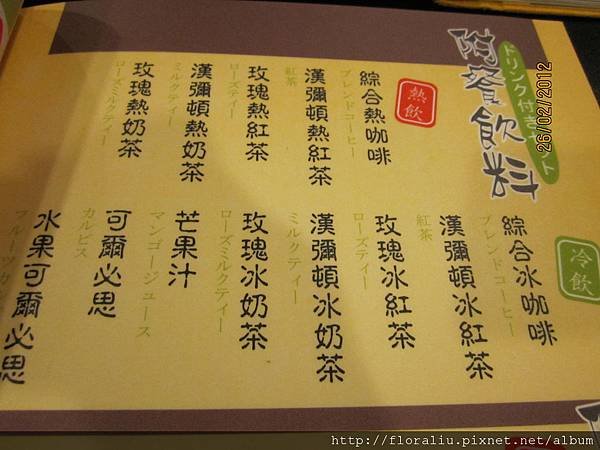 附餐飲料
ドリンク付きセット
熱飲
綜合熱咖啡
ブレンドコーヒー
漢彌頓熱紅茶
紅茶
玫瑰熱紅茶
ローズティー
漢彌頓熱奶茶
ミルクティー
玫瑰熱奶茶
ローズミルクティー
冷飲
綜合冰咖啡
ブレンドコーヒー
漢彌頓冰紅茶
紅茶
玫瑰冰紅茶
ローズティー
漢彌頓冰奶茶
ミルクティー
玫瑰冰奶茶
ローズミルクティー
芒果汁
マンゴージュース
可爾必思
カルピス
水果可爾必思
フルーツカ
26/02/2012
http://floraliu.pixnet.net/album